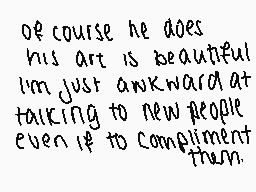 of course he does
his art is beautiful
i'm just awkward at
talking to new people
even if to compliment
them.